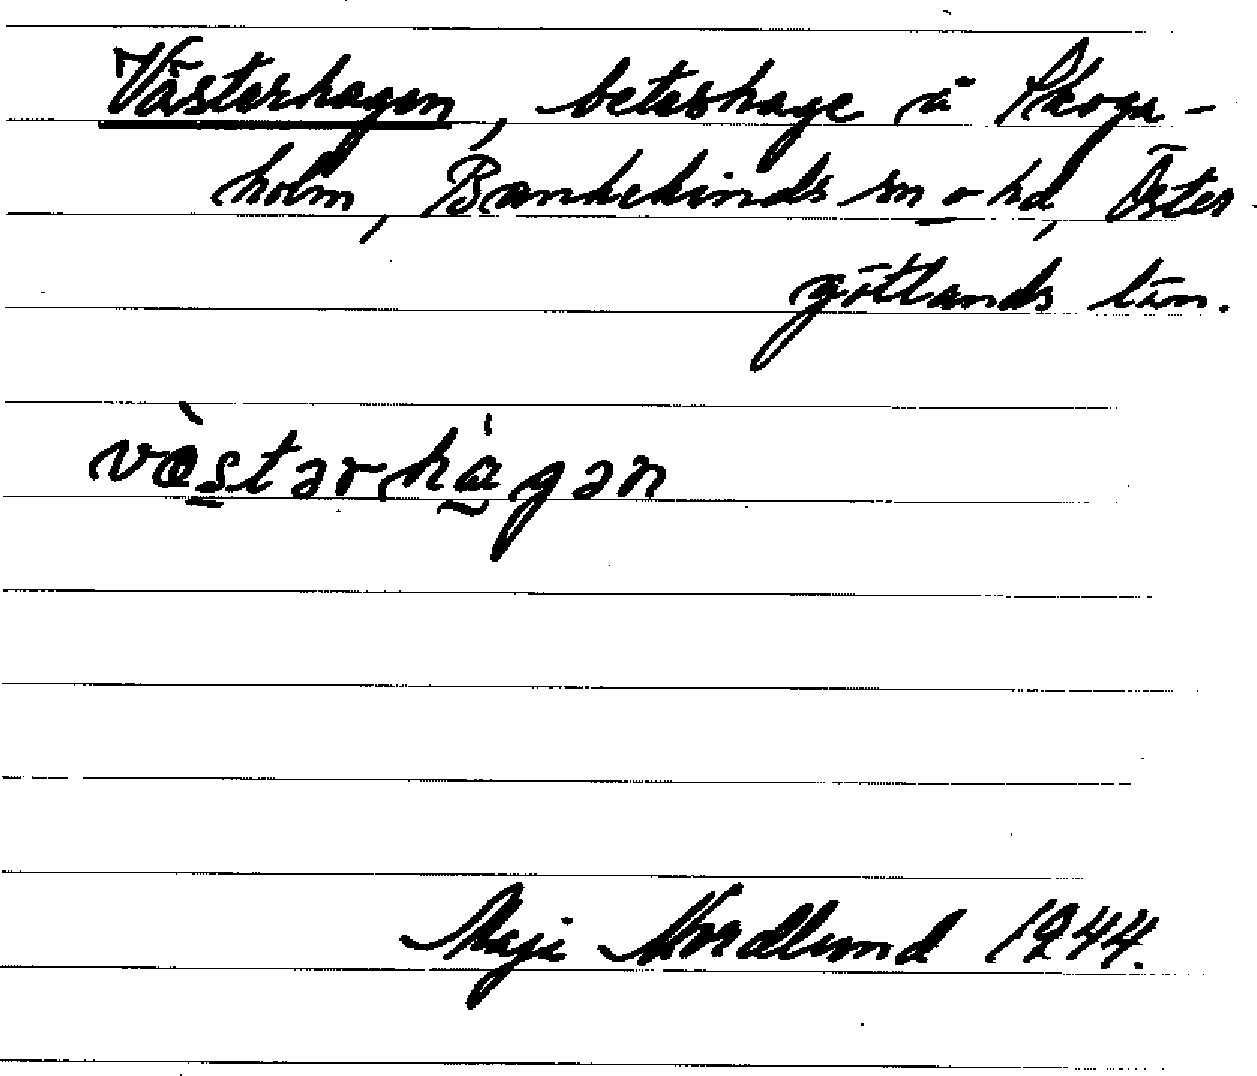 Västerhagen, beteshage å Skoga-
holm, Bankekinds sn o hd, Öster
götlands län.
væ̀stərhɑ́gən
Maji Nordlund 1944.